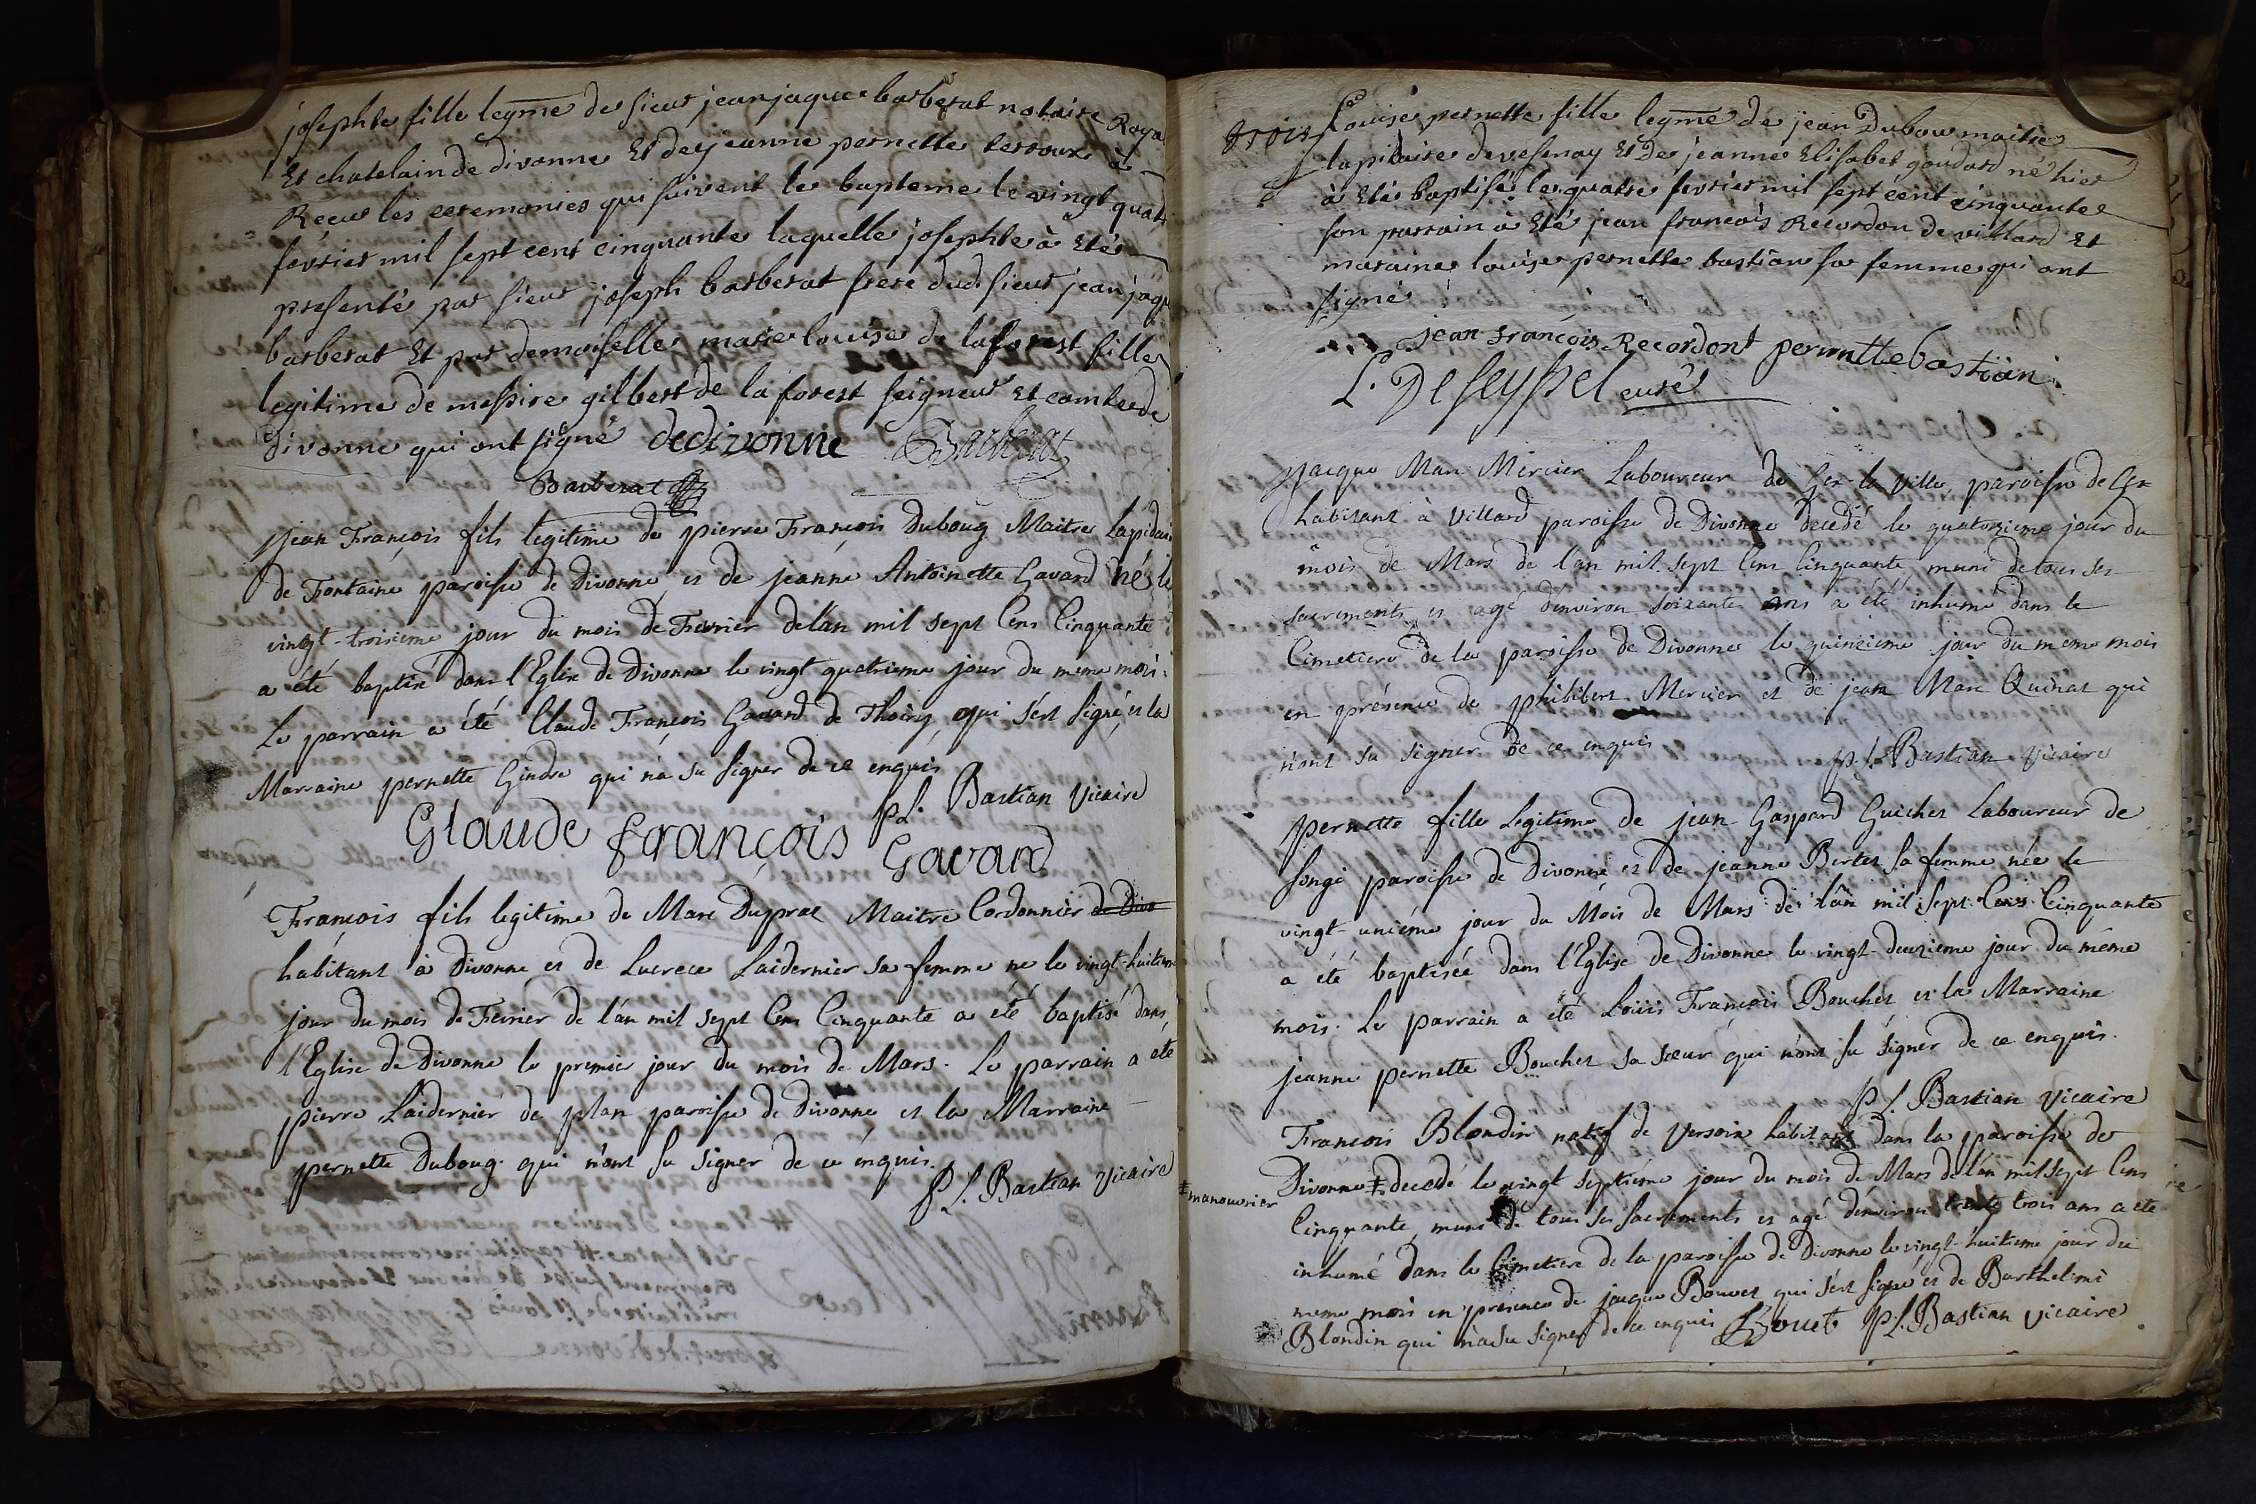 josephte fille legme de sieur jean jaque barberat notaire Roya
Et chatelain de divonne Et de jeanne pernette terroux à
Reçu les ceremonies qui suivent le bapteme le vingt quatr
fevrier mil sept cent cinquante laquelle josephte à Eté
presenté par sieur joseph barberat frere dud. sieur jean jaqu
barberat Et par demoiselle marie louise de laforest fille
legitime de messire gilbert de la forest seigneur Et comte de
divonne qui ont signé dedivonne Barberat
Barberat
jean François fils legitime de pierre François Duboug Maitre Lapidair
de Fontaine paroisse de Divonne et de jeanne Antoinette Gavard né le
vingt-troisieme jour du mois de Fevrier de l'an mil sept Cens Cinquante
a été baptisé dans l'Eglise de Divonne le vingt quatrieme jour du meme mois.
Le parrain a été Claude François Gavard de Thoiry, qui s'est signé, et la
Marraine pernette Gindre qui n'a su signer de ce enquis
P. L. Bastian Vicaire
Glaude françois Gavard
François fils legitime de Marc Duprat Maitre Cordonnier de Divo
habitant à Divonne et de Lucrece Laidernier sa femme né le vingt-huitiem
jour du mois de Fevrier de l'an mil sept Cens Cinquante a été baptisé dans
l'Eglise de Divonne le premier jour du mois de Mars. Le parrain a eté
pierre Laidernier de plan paroisse de Divonne et la Marraine
pernette Duboug qui n'ont su signer de ce enquis.
P. L. Bastian Vicaire
trois Louise pernette fille legme de jean Dubou maitre
lapidaire de vesenay Et de jeanne Elisabet goudard né hier
à Eté baptisé le quatre fevrier mil sept cent cinquante
son parrain à Eté jean francois Recordon de villard Et
maraine louise pernette bastian sa femme qui ont
signé
jean françois Recordont pernette bastian
L. De seyssel curé
jacque Marc Mercier Laboureur de Gex-la ville, paroisse de Gex
habitant à Villard paroisse de Divonne decedé le quatorzieme jour du
mois de Mars de l'an mil sept Cens Cinquante muni de tous ses
sacrements et agé d'environ soixante ans a été inhumé dans le
Cimetiere de la paroisse de Divonne le quinzieme jour du meme mois
en présence de philibert Mercier et de jean Marc Quinat qui
n'ont su signer de ce enquis
P. L. Bastian Vicaire
pernette fille Legitime de jean Gaspard Guichet Laboureur de
songi paroisse de Divonne et de jeanne Bertet sa femme née le
vingt-unieme jour du Mois de Mars de l'an mil Sept Cens Cinquante
a été baptisée dans l'Eglise de Divonne le vingt-deuzieme jour du même
mois. Le parrain a été Louis François Bouchet et la Marraine
jeanne pernette Bouchet sa sœur qui n'ont su signer de ce enquis.
P. L. Bastian Vicaire
François Blondin natif de Versoix habitant dans la paroisse de
Divonne ‡ decedé le vingt septiéme jour du mois de Mars de l'an mil sept Cens
‡ manouvrier
Cinquante, muni de tous ses sacrements et agé d'environ trente trois ans a eté
inhumé dans le Cimetiere de la paroisse de Divonne le vingt-huitieme jour du
meme mois en presence de jacque Bouvet qui s'est signé et de Barthelimi
Blondin qui n'a su signer de ce enquis Bouet P. L. Bastian vicaire